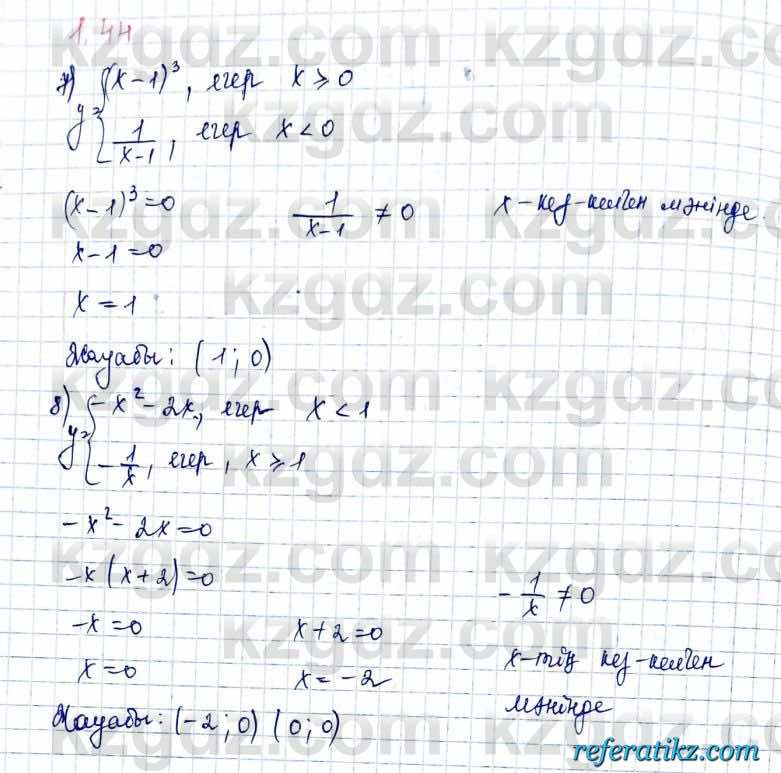 1.44
7) y = { (x-1)³, егер x ≥ 0
1/(x-1), егер x < 0
(x-1)³=0    1/(x-1) ≠ 0    x-кез-келген мәнінде.
x-1=0
x = 1
Жауабы: (1; 0)
8) y = { -x²-2x, егер x < 1
-1/x, егер, x ≥ 1
-x²-2x=0
-x(x+2)=0    -1/x ≠ 0
-x=0    x+2=0
x=0    x=-2    x-тің кез-келген
Жауабы: (-2; 0) (0; 0)    мәнінде
referatikz.com
kzgdz.com